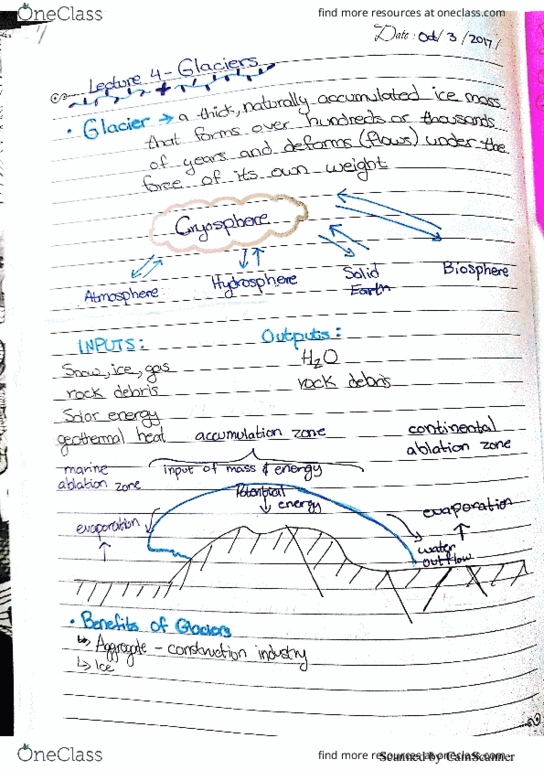 OneClass
find more resources at oneclass.com
Date: Oct/3/2017/
Lecture 4 - Glaciers
• Glacier → a thick, naturally accumulated ice mass
that forms over hundreds or thousands
of years and deforms (flows) under the
force of its own weight
Cryosphere
Atmosphere
Hydrosphere
Solid
Earth
Biosphere
INPUTS:
Outputs:
Snow, ice, gas
H₂O
rock debris
rock debris
Solar energy
geothermal heat
accumulation zone
continental
ablation zone
marine
ablation zone
input of mass & energy
Potential
energy
evaporation
evaporation
water
outflow
• Benefits of Glaciers
↳ Aggregate - construction industry
↳ Ice
OneClass
find more resources at oneclass.com
Scanned by CamScanner